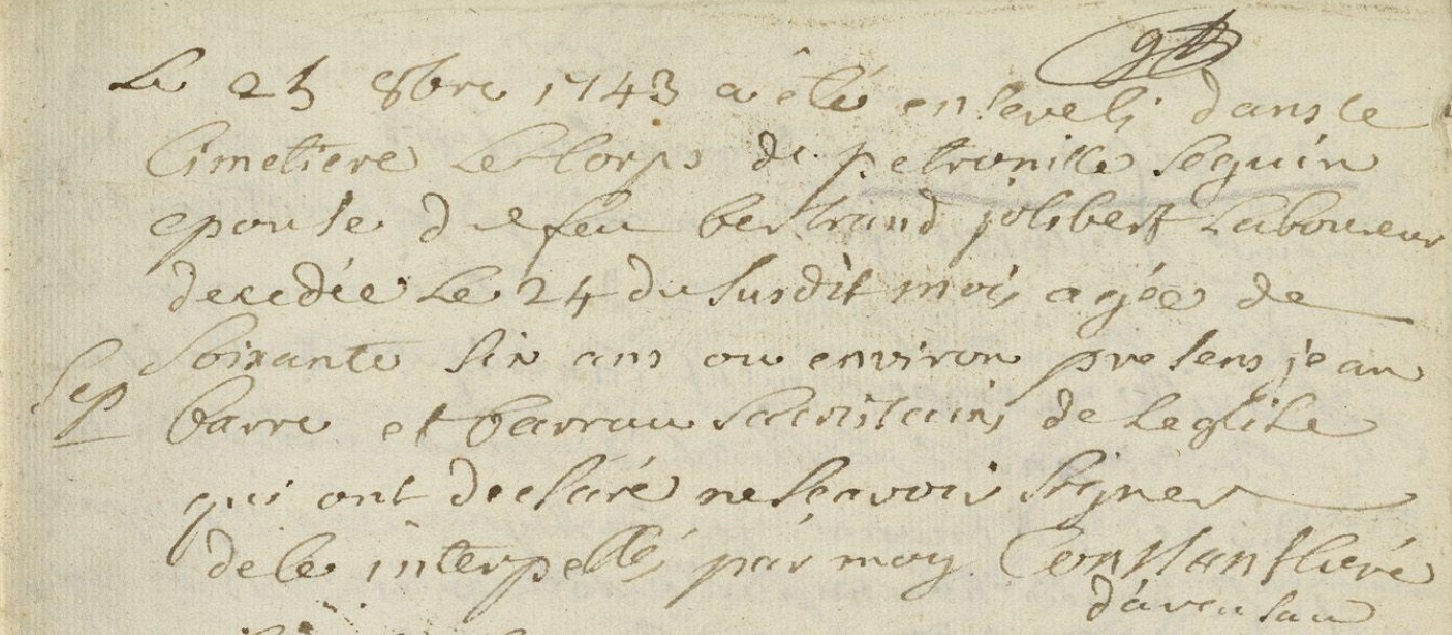 Le 25 8bre 1743 a été enseveli dans le
Cimetiere Le Corps de petronille Seguin
epouse de feu bertrand jolibert Laboureur
decedée Le 24 du susdit mois agée de
Soixante six ans ou environ presens jean
Sep
barre et barrau Sacristains de Leglise
qui ont declaré ne sçavoir signer
de ce interpellés par moy Constans curé
d'avensan